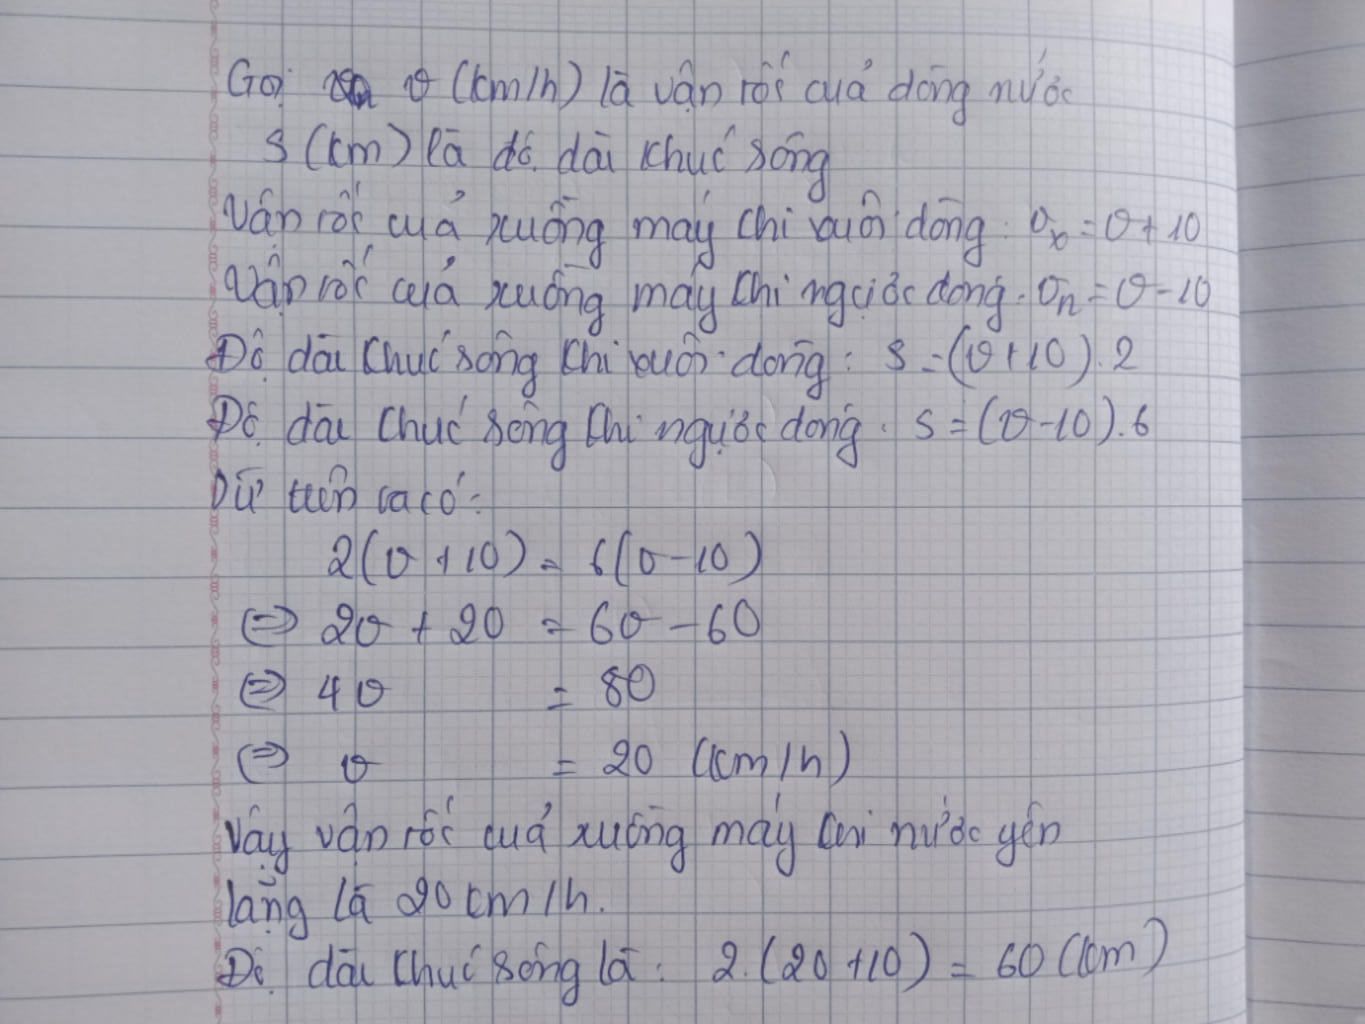 Gọi v (km/h) là vận tốc của dòng nước
S (km) là độ dài khúc sông
Vận tốc của xuồng máy khi xuôi dòng: vx = v + 10
Vận tốc của xuồng máy khi ngược dòng: vn = v - 10
Độ dài khúc sông khi xuôi dòng: S = (v + 10) . 2
Độ dài khúc sông khi ngược dòng: S = (v - 10) . 6
Từ trên ta có:
2(v + 10) = 6(v - 10)
⇔ 2v + 20 = 6v - 60
⇔ 4v = 80
⇔ v = 20 (km/h)
Vậy vận tốc của xuồng máy khi nước yên
lặng là 20 km/h.
Độ dài khúc sông là: 2.(20 + 10) = 60 (km)